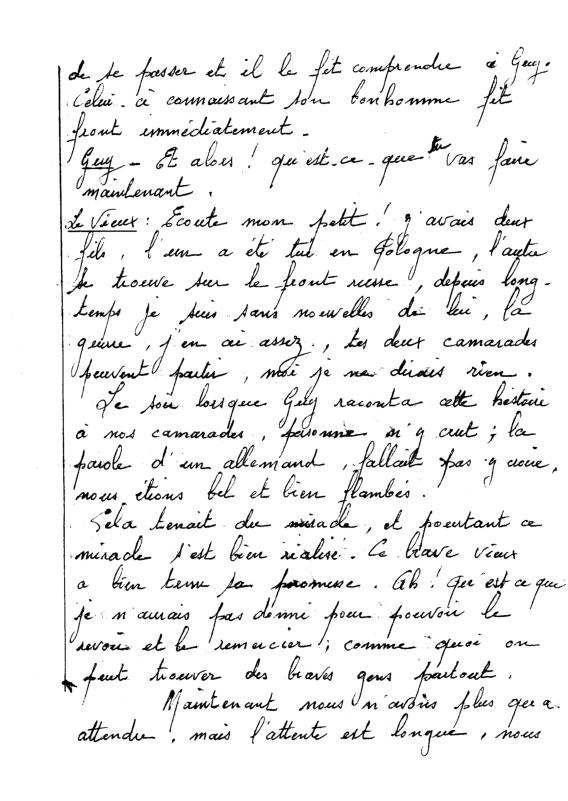 de se passer et il le fit comprendre à Guy.
Celui-ci connaissant son bonhomme fit
front immédiatement -
Guy - Et alors ! qu'est-ce-que tu vas faire
maintenant.
Le Vieux : Ecoute mon petit ! j'avais deux
fils, l'un a été tué en Pologne, l'autre
se trouve sur le front russe, depuis long-
temps je suis sans nouvelles de lui, la
guerre, j'en ai assez, tes deux camarades
peuvent partir, moi je ne dirais rien.
Le soir lorsque Guy raconta cette histoire
à nos camarades, personne n'y crut ; la
parole d'un allemand, fallait pas y croire,
nous étions bel et bien flambés.
Cela tenait du miracle, et pourtant ce
miracle s'est bien réalisé. Ce brave vieux
a bien tenu sa promesse. Ah ! qu'est ce que
je n'aurais pas donné pour pouvoir le
revoir et le remercier ; comme quoi on
peut trouver des braves gens partout.
Maintenant nous n'avons plus qu'a
attendre, mais l'attente est longue, nous